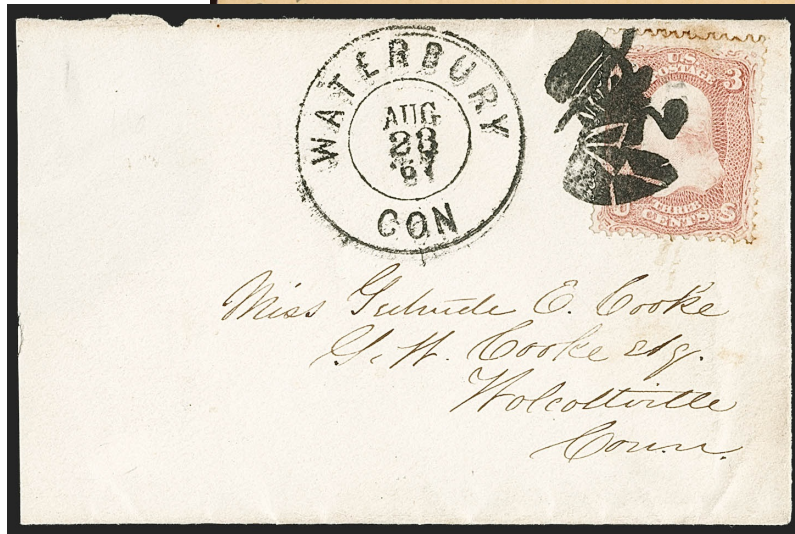 WATERBURY
AUG
28
'67
CON
U.S.
POSTAGE
3
THREE
U CENTS S
Miss Gertrude E. Cooke
G. W. Cooke esq.
Wolcottville
Conn.